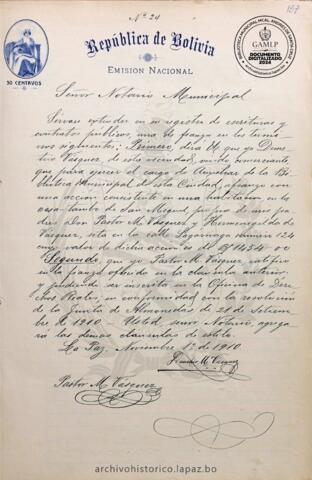 Nº 24
197
República de Bolivia
Emisión Nacional
50 CENTAVOS
BIBLIOTECA MUNICIPAL MCAL. ANDRÉS DE SANTA CRUZ
GAMLP
DOCUMENTO
DIGITALIZADO
2024
archivohistorico.lapaz.bo
Señor Notario Municipal
Sírvase extender en su registro de escrituras y
contratos públicos, una de fianza en los térmi-
nos siguientes: Primero, dirá U. que yo Deme-
trio Vásquez, de esta vecindad,
que para ejercer el cargo de Auxiliar de la Bi-
blioteca Municipal de esta Ciudad, afianzo con
una acción consistente en una habitación, en la
casa tambo de San Miguel, propia de mis pa-
dres don Pastor M. Vásquez y Hermenegilda de
Vásquez, sita en la calle Sagárnaga número 124
cuyo valor de dicha acción es de Bs 1434-00
Segundo, que yo Pastor M. Vásquez ratifico
en la fianza ofrecida en la cláusula anterior,
y pudiendo ser inscrita en la Oficina de Dere-
chos Reales, en conformidad con la resolución
de la Junta de Almonedas de 21 de Setiem-
bre de 1910.- Usted, señor Notario, agrega-
rá las demás cláusulas de estilo.
La Paz, Noviembre 12 de 1910.
Pastor M. Vásquez
archivohistorico.lapaz.bo